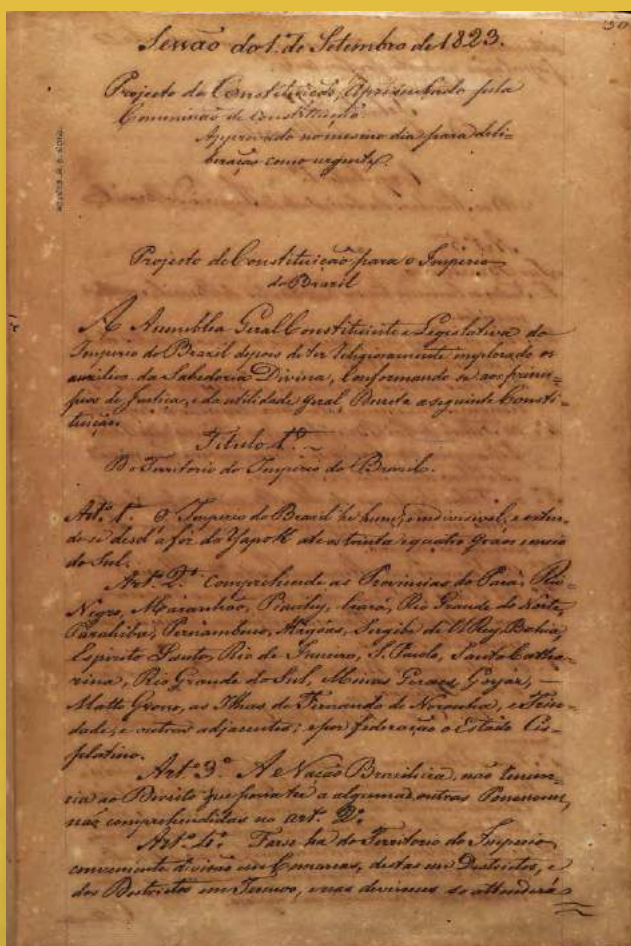 Sessão do 1º de Setembro de 1823.
Projecto de Constituição, Apresentado pela
Commissão de Constituição
Approvado no mesmo dia para deli-
beração como urgente.
Projecto de Constituição para o Imperio
do Brazil
A Assemblea Geral Constituinte e Legislativa do
Imperio do Brazil depois de ter religiosamente implorado os
auxilios da Sabedoria Divina, Conformando se aos princi-
pios de Justiça, e da utilidade geral Decreta a seguinte Consti-
tuição.
Titulo 1º
Do Territorio do Imperio do Brazil.
Artº 1º O Imperio do Brazil he hum, e indivisivel, e esten-
de-se desd'a foz do Yapok até os trinta e quatro graos e meio
do Sul.
Artº 2º Comprehende as Provincias do Pará, Rio
Negro, Maranhão, Piauhy, Ceará, Rio Grande do Norte,
Parahiba, Pernambuco, Alagôas, Sergipe de El Rey, Bahia,
Espirito Santo, Rio de Janeiro, S. Paulo, Santa Catha-
rina, Rio Grande do Sul, Minas Geraes, Goyaz, —
Matto Grosso, as Ilhas de Fernando de Noronha, e Trin-
dade, e outras adjacentes; e por federação o Estado Cis-
platino.
Artº 3º A Nação Brasileira não renun-
cia ao Direito que possa ter a algumas outras Possessoens,
não comprehendidas no art. 2º
Artº 4º Far se ha do Territorio do Imperio
conveniente divisão em Comarcas, destas em Districtos, e
dos Districtos em Termos, e nas divisoens se attenderá